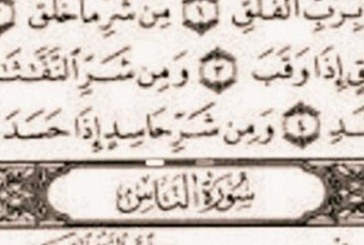 بِرَبِّ ٱلْفَلَقِ ١ مِن شَرِّ مَا خَلَقَ
إِذَا وَقَبَ ٣ وَمِن شَرِّ ٱلنَّفَّٰثَٰ
ـدِ ٤ وَمِن شَرِّ حَاسِدٍ إِذَا حَسَدَ
سُورَةُ ٱلنَّاسِ